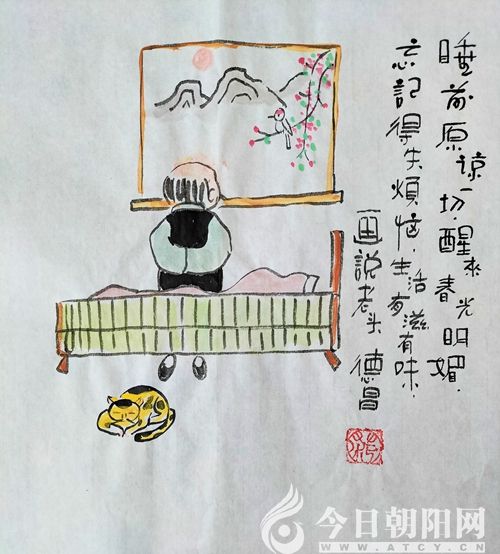 睡前原諒一切.醒來春光明媚.
忘記得失煩恼.生活有滋有味.
画説老头 德昌
今日朝阳网
WWW.ATCY.CN